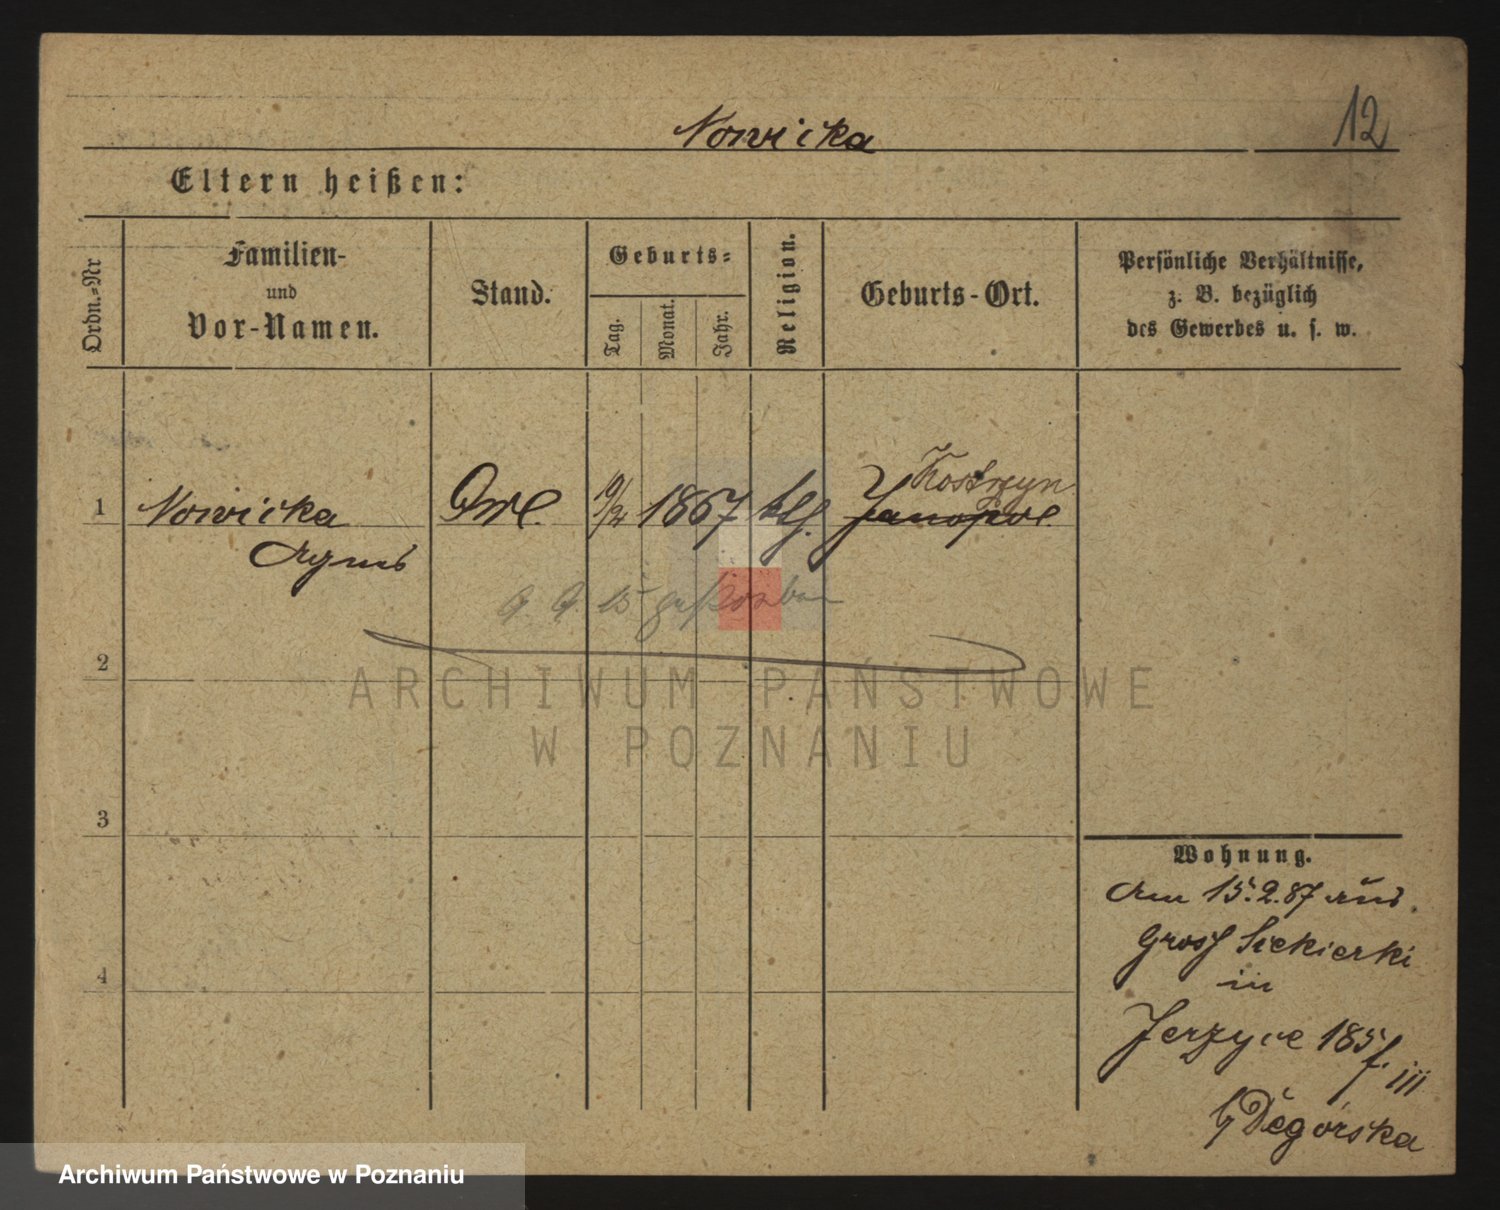 Nowicka
12
Eltern heißen:
Ordn.-Nr
Familien-
und
Vor-Namen.
Stand.
Geburts-
Tag.
Monat.
Jahr.
Religion.
Geburts-Ort.
Persönliche Verhältnisse,
z. B. bezüglich
des Gewerbes u. s. w.
Kostrzyn
1 Nowicka 1867 kth.
Agnes
2
ARCHIWUM PAŃSTWOWE
W POZNANIU
3
Wohnung.
Am 15.2.87 aus
Gross Siekierki
4
in
Jerzyce 185 f. III
b/ Degórska
Archiwum Państwowe w Poznaniu